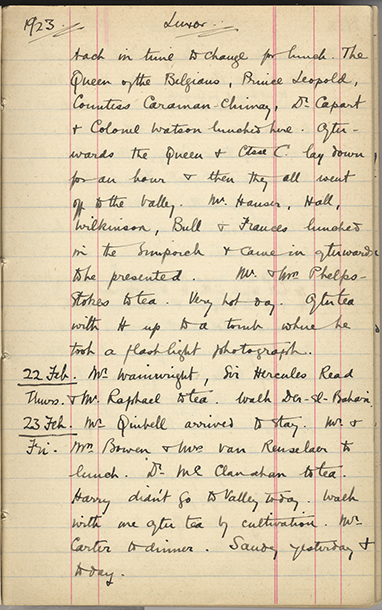 1923. Luxor.
back in time to change for lunch. The
Queen of the Belgians, Prince Leopold,
Countess Caraman-Chimay, Dr. Capart
& Colonel Watson lunched here. After-
wards the Queen & Ctsse C. lay down
for an hour & then they all went
off to the Valley. Mr. Hauser, Hall,
Wilkinson, Bull & Frances lunched
in the Sunporch & came in afterwards
to be presented. Mr. & Mrs Phelps-
Stokes to tea. Very hot day. After tea
with H up to a tomb where he
took a flashlight photograph.
22 Feb. Mr. Wainwright, Sir Hercules Read
Thurs. & Mr. Raphael to tea. Walk Der-el-Bahari.
23 Feb. Mr. arrived to stay. Mr. &
Fri. Mrs Bowen & Mrs van Renselaer to
lunch. Dr. Mc Clanahan to tea.
Harry didn't go to Valley today. Walk
with me after tea by cultivation. Mr.
Carter to dinner. Sandy yesterday &
today.